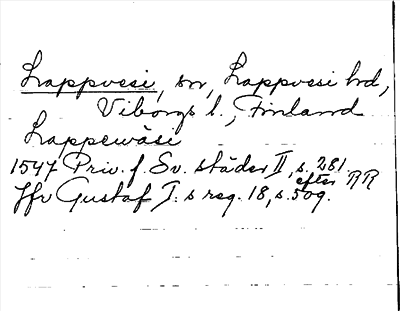 Lappvesi, sn, Lappvesi hd,
Viborgs l., Finland
Lappewäsi
1547 Priv. f. Sv. städer II, s. 281.
efter RR
Jfr Gustaf I:s reg. 18, s. 509.